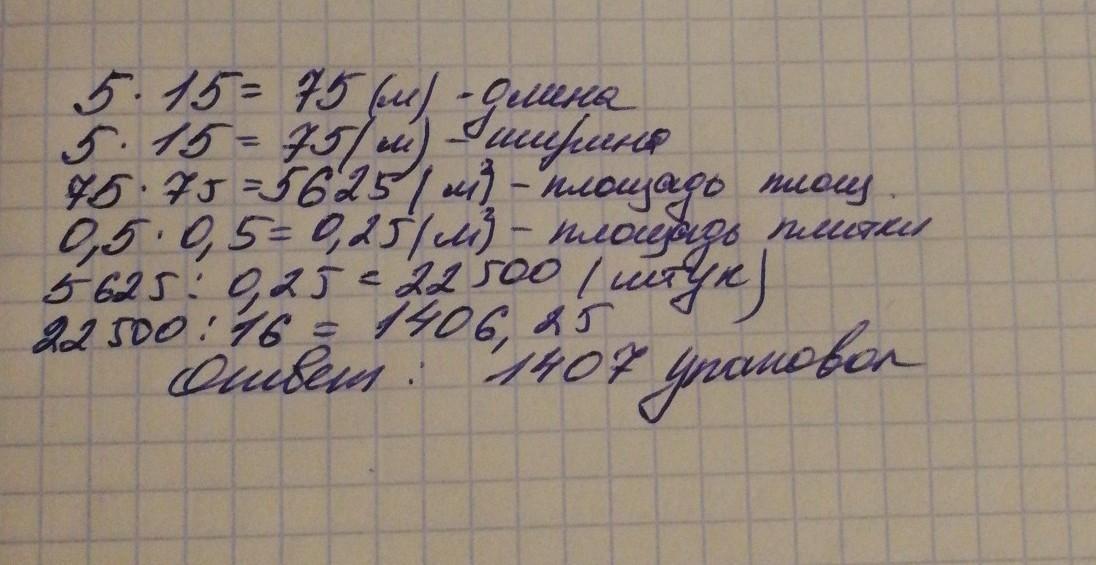 5 · 15 = 75 (м) - длина
5 · 15 = 75 (м) - ширина
75 · 75 = 5625 (м³) - площадь площ.
0,5 · 0,5 = 0,25 (м³) - площадь плитки
5625 : 0,25 = 22500 (штук)
22500 : 16 = 1406,25
Ответ: 1407 упаковок